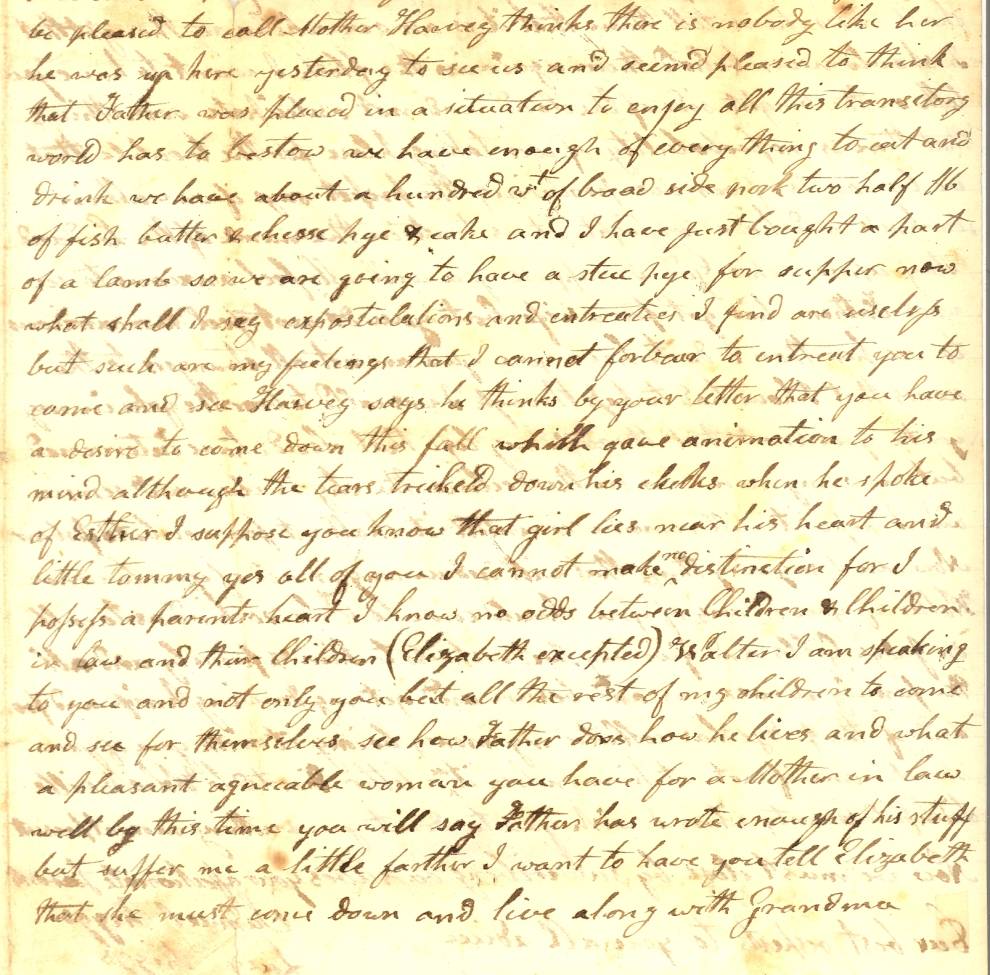 be pleased to call Mother Harvey thinks there is nobody like her
he was up here yesterday to see us and seemd pleased to think
that Father was placed in a situation to enjoy all this transitory
world has to bestow we have enough of every thing to eat and
drink we have about a hundred wt of broad side pork two half bb
of fish butter & chesse pye & cake and I have just bought a part
of a lamb so we are going to have a stue pye for supper now
what shall I say expostulations and entreaties I find are uselyss
but such are my feelings that I cannot forbear to entreat you to
come and see Harvey says he thinks by your letter that you have
a desire to come down this fall which gave animation to his
mind although the tears trickeld down his cheeks when he spoke
of Esther I suppose you know that girl lies near his heart and
little tommy yes all of you I cannot make no distinction for I
possess a parents heart I know no odds between Children & Children
in law and their Children (Elizabeth excepted) Walter I am speaking
to you and not only you but all the rest of my children to come
and see for themselves see how Father does how he lives and what
a pleasant agreeable woman you have for a Mother in law
well by this time you will say Father has wrote enough of his stuff
but suffer me a little farther I want to have you tell Elizabeth
that she must come down and live along with Grandma